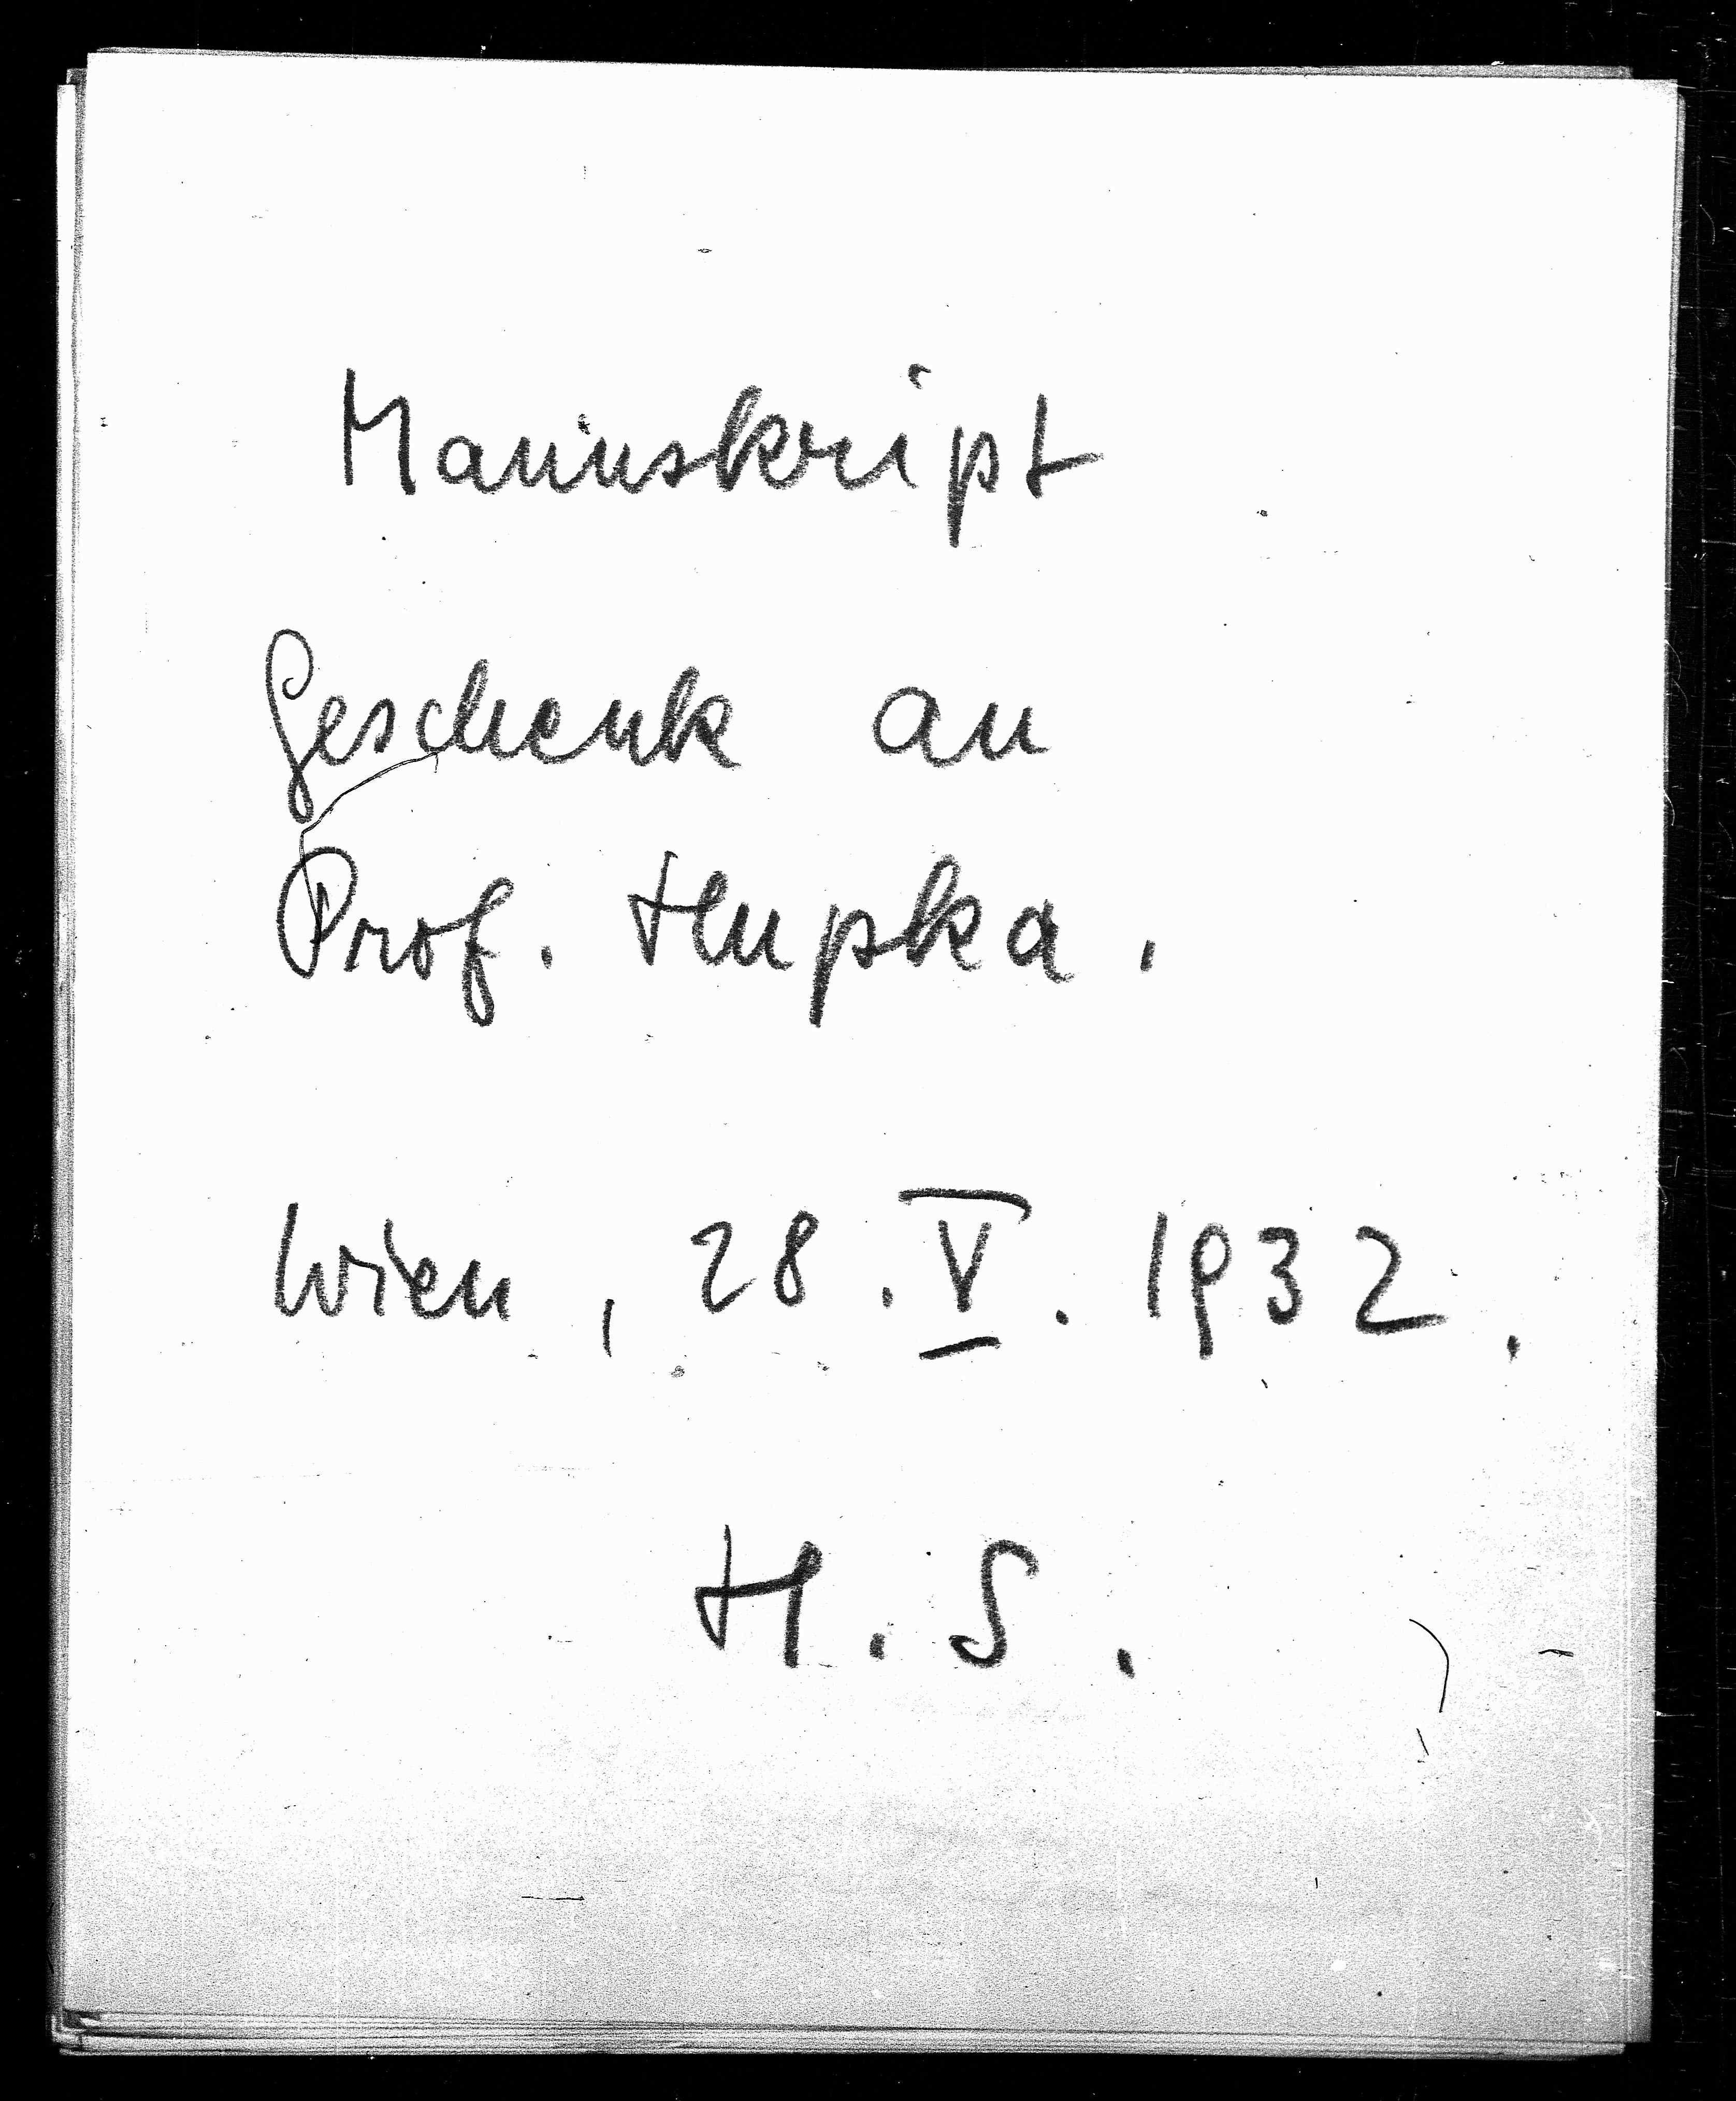 Manuskript
Geschenk an
Prof. Hupka.
Wien, 28. V. 1932.
H. S.